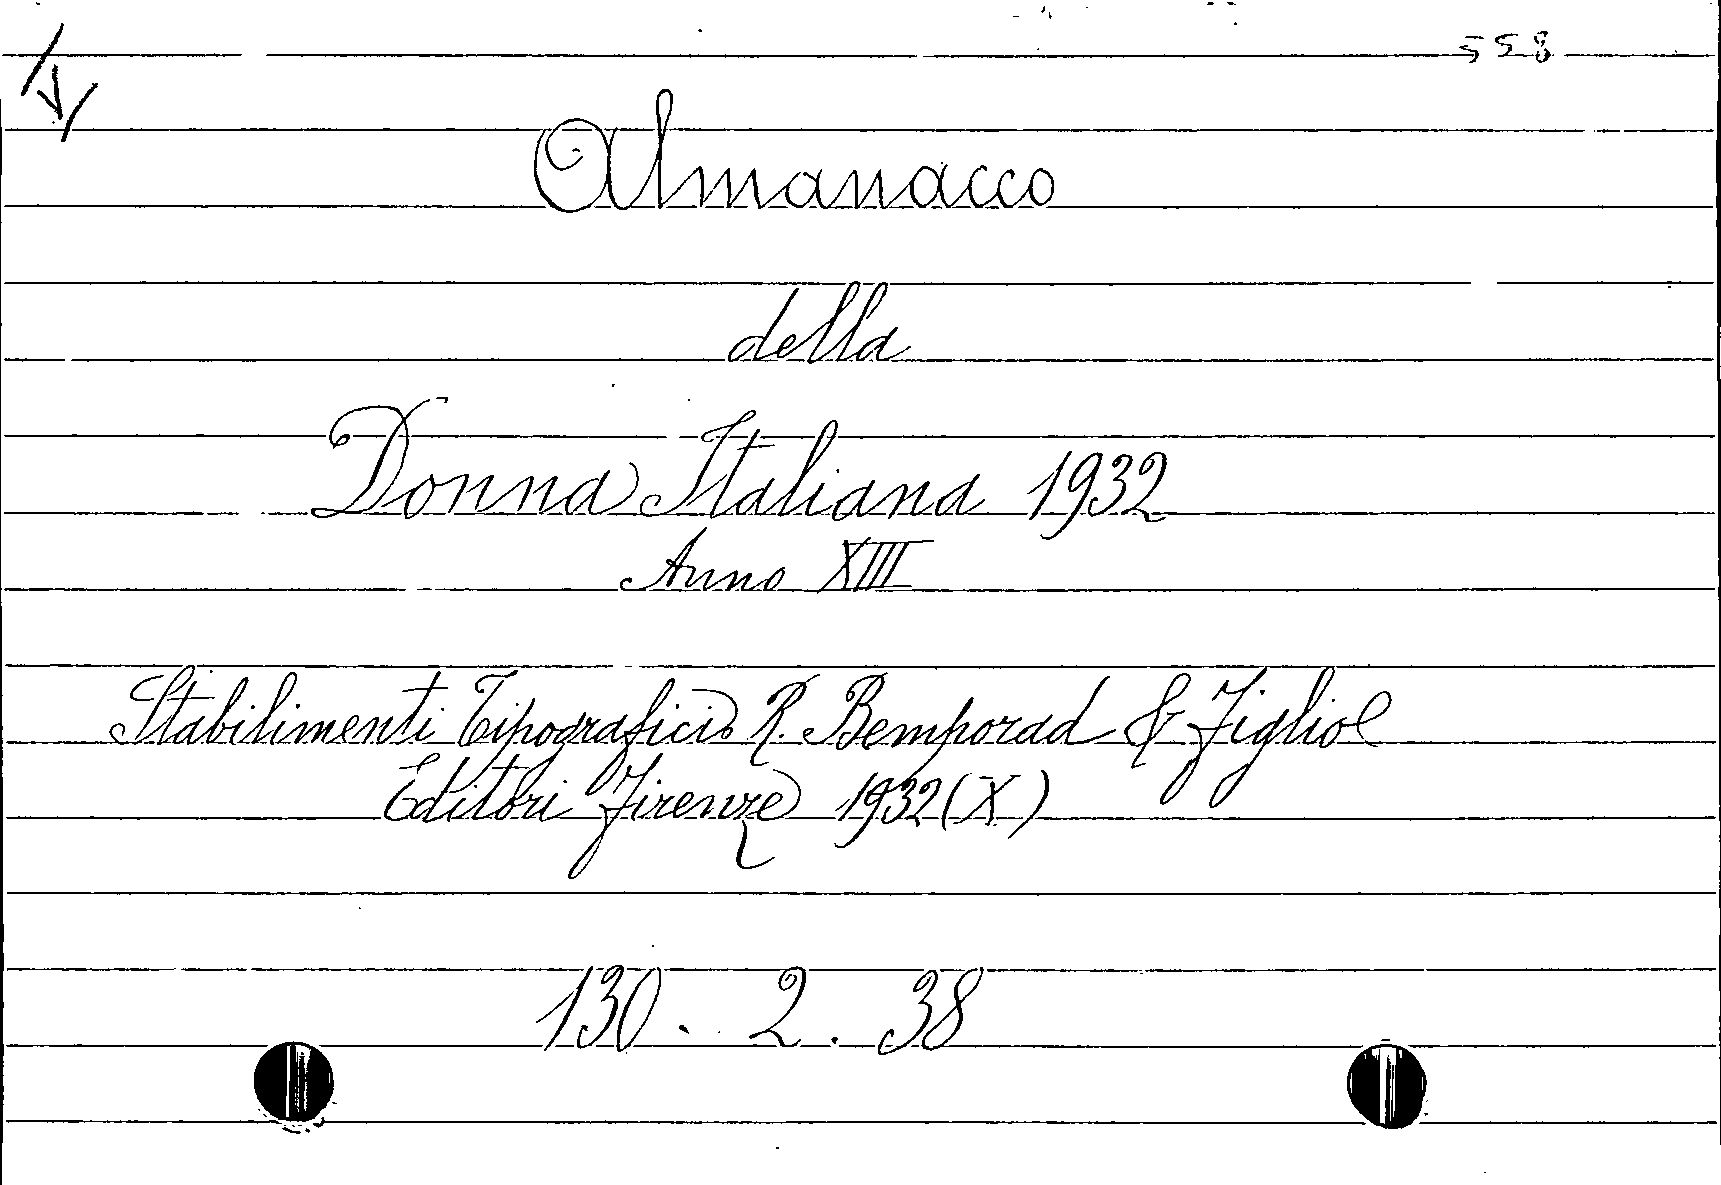 558
Almanacco
della
Donna Italiana 1932
Anno XIII
Stabilimenti Tipografici R. Bemporad & Figlio
Editori Firenze 1932 (X)
130. 2. 38